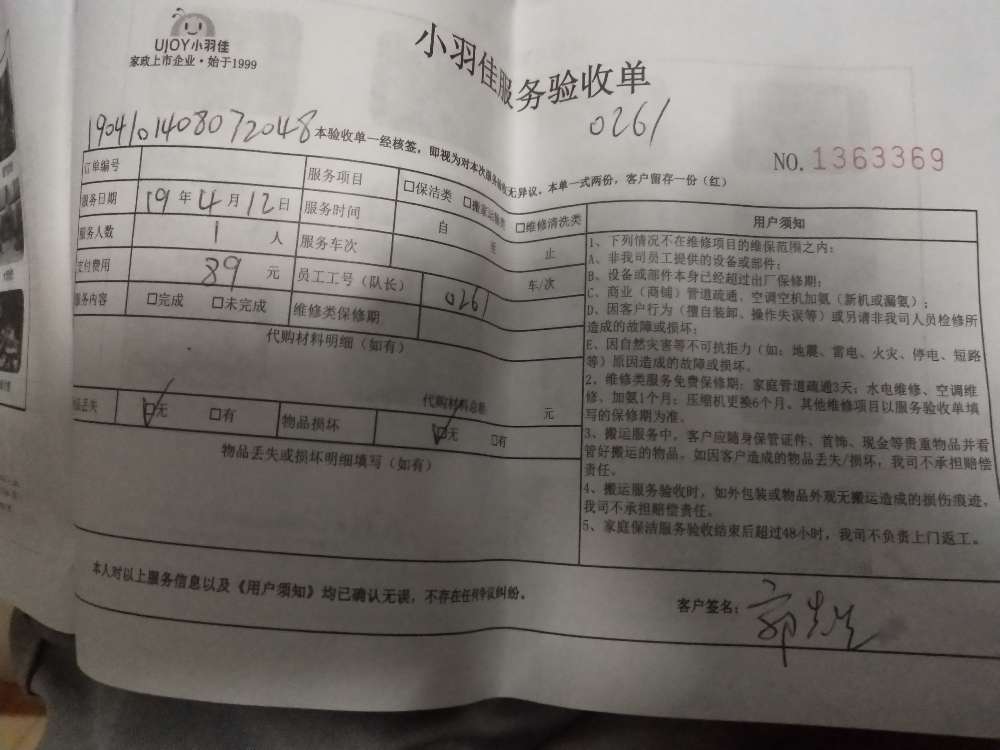 UJOY小羽佳
家政上市企业·始于1999
小羽佳服务验收单
0261
1904101408072048
本验收单一经核签,即视为对本次服务验收无异议。本单一式两份,客户留存一份(红)
NO.1363369
订单编号
服务项目 □保洁类 □搬家运输类 □维修清洗类
服务日期 19年4月12日
服务时间 自 至 止
服务人数 1 人
服务车次 车/次
支付费用 89 元
员工工号(队长) 0261
服务内容 □完成 □未完成
维修类保修期
代购材料明细(如有)
代购材料总额 元
物品丢失 ☑无 □有
物品损坏 ☑无 □有
物品丢失或损坏明细填写(如有)
用户须知
1、下列情况不在维修项目的维保范围之内:
A、非我司员工提供的设备或部件;
B、设备或部件本身已经超过出厂保修期;
C、商业(商铺)管道疏通、空调空机加氨(新机或漏氨);
D、因客户行为(擅自装卸、操作失误等)或另请非我司人员检修所
造成的故障或损坏;
E、因自然灾害等不可抗拒力(如:地震、雷电、火灾、停电、短路
等)原因造成的故障或损坏。
2、维修类服务免费保修期:家庭管道疏通3天;水电维修、空调维
修、加氨1个月;压缩机更换6个月。其他维修项目以服务验收单填
写的保修期为准。
3、搬运服务中,客户应随身保管证件、首饰、现金等贵重物品并看
管好搬运的物品。如因客户造成的物品丢失/损坏,我司不承担赔偿
责任。
4、搬运服务验收时,如外包装或物品外观无搬运造成的损伤痕迹,
我司不承担赔偿责任。
5、家庭保洁服务验收结束后超过48小时,我司不负责上门返工。
本人对以上服务信息以及《用户须知》均已确认无误,不存在任何争议纠纷。
客户签名:郭